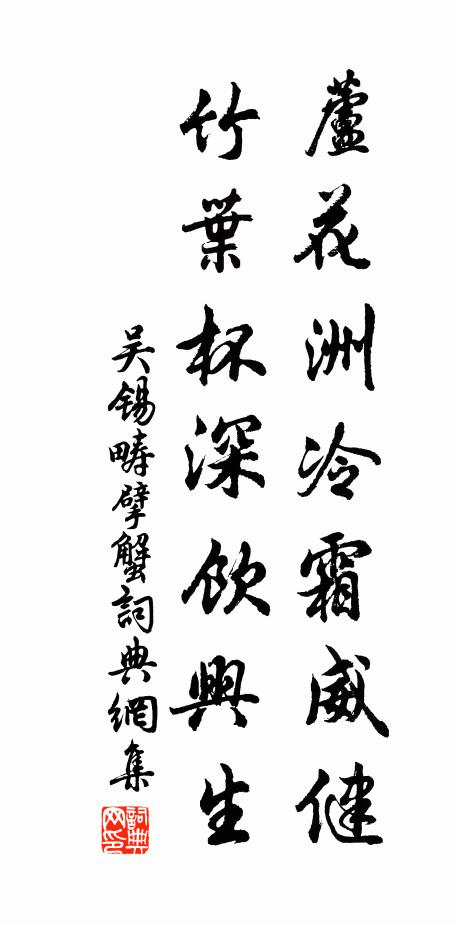 蘆花洲冷霜威健
竹葉杯深飲興生
吴錫疇擘蟹詞典網集
詞典网印